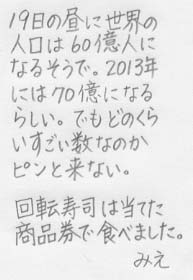 19日の昼に世界の
人口は60億人に
なるそうで。2013年
には70億になる
らしい。でもどのくら
いすごい数なのか
ピンと来ない。
回転寿司は当てた
商品券で食べました。
みえ